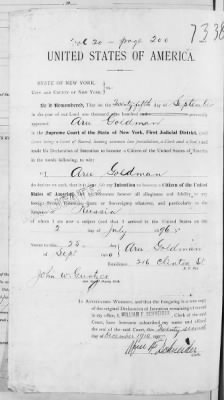 Vol 20 - page 200
7338
UNITED STATES OF AMERICA.
STATE OF NEW YORK,
CITY AND COUNTY OF NEW YORK, } ss.
Be it Remembered, That on the Twenty fifth day of September
in the year of our Lord one thousand nine hundred
personally
appeared Aru Goldman
in the Supreme Court of the State of New York, First Judicial District,
Court being a Court of Record, having common law jurisdiction, a Clerk and a Seal) and
made his Declaration of Intention to become a Citizen of the United States of America
in the words following, to wit:
I, Aru Goldman
do declare on oath, that it is bona fide my Intention to become a Citizen of the United
States of America, and to renounce forever all allegiance and fidelity to any
foreign Prince, Potentate, State or Sovereignty whatever, and particularly to the
Russia
of whom I am now a subject
2 day of July
Sworn to this 25 day
of Sep
Aru Goldman
Residence, 216 Clinton St
John W.
IN ATTESTATION WHEREOF, and that the foregoing is a true copy
of the original Declaration of Intention remaining of record
in my office, I, WILLIAM F. SCHNEIDER, Clerk of the said
Court, have hereunto subscribed my name and affixed
the seal of the said Court, this Twenty seventh
day of December 1910
Wm F Schneider
Clerk